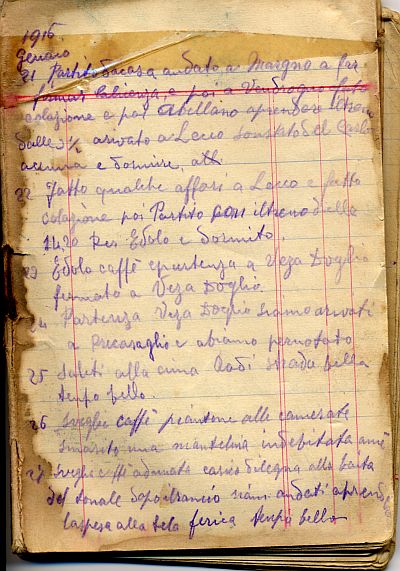 1916
Genaio
21 Partito da casa andato a Margno a far
firmar la licenza e poi a Vendrogno fato
colazione e poi a Bellano a prendere il treno
dalle 3½ arivato a Lecco sonstato del Carlo
acena e dormire,
22 Fatto qualche affari a Lecco e fatto
colazione poi Partito con il treno delle
14.20 Per Edolo e dormito.
23 Edolo caffè e partenza a Veza Doglio
fermato a Veza Doglio.
24 Partenza Veza Doglio siamo arivati
a Precasaglio e abiamo pernotato
25 Saliti alla cima Cadi strada bella
tempo bello.
26 Sveglia caffè piantone alle camerate
smarito una mantelina indebitata a mè
27 Sveglia caffè adunata carico di legna alla baita
del tonale dopo il rancio siam andati a prend
la spesa alla tela ferica tempo bello